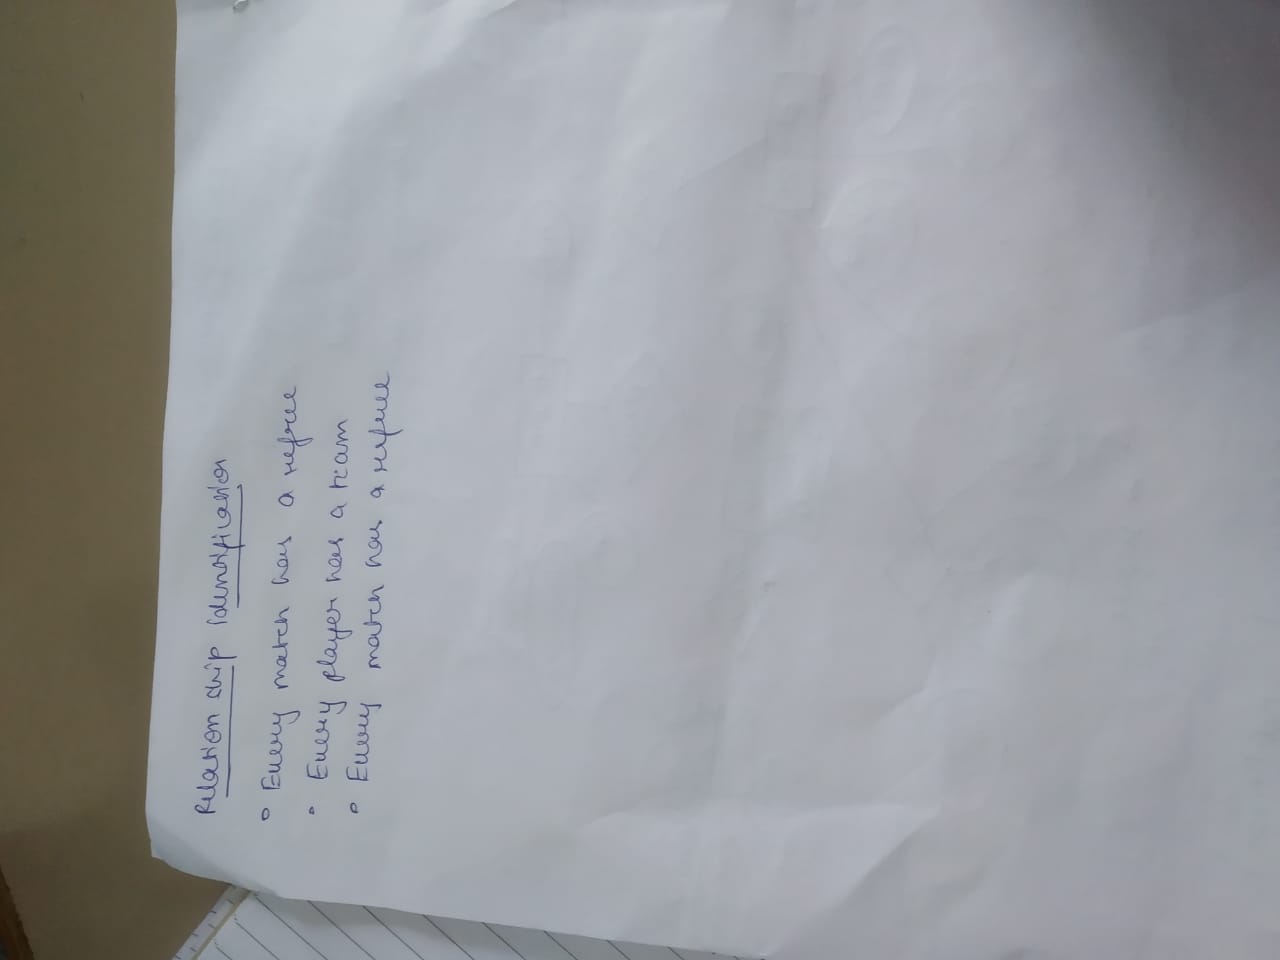 Relation ship identification
Every match has a refree
Every player has a team
Every match has a refree